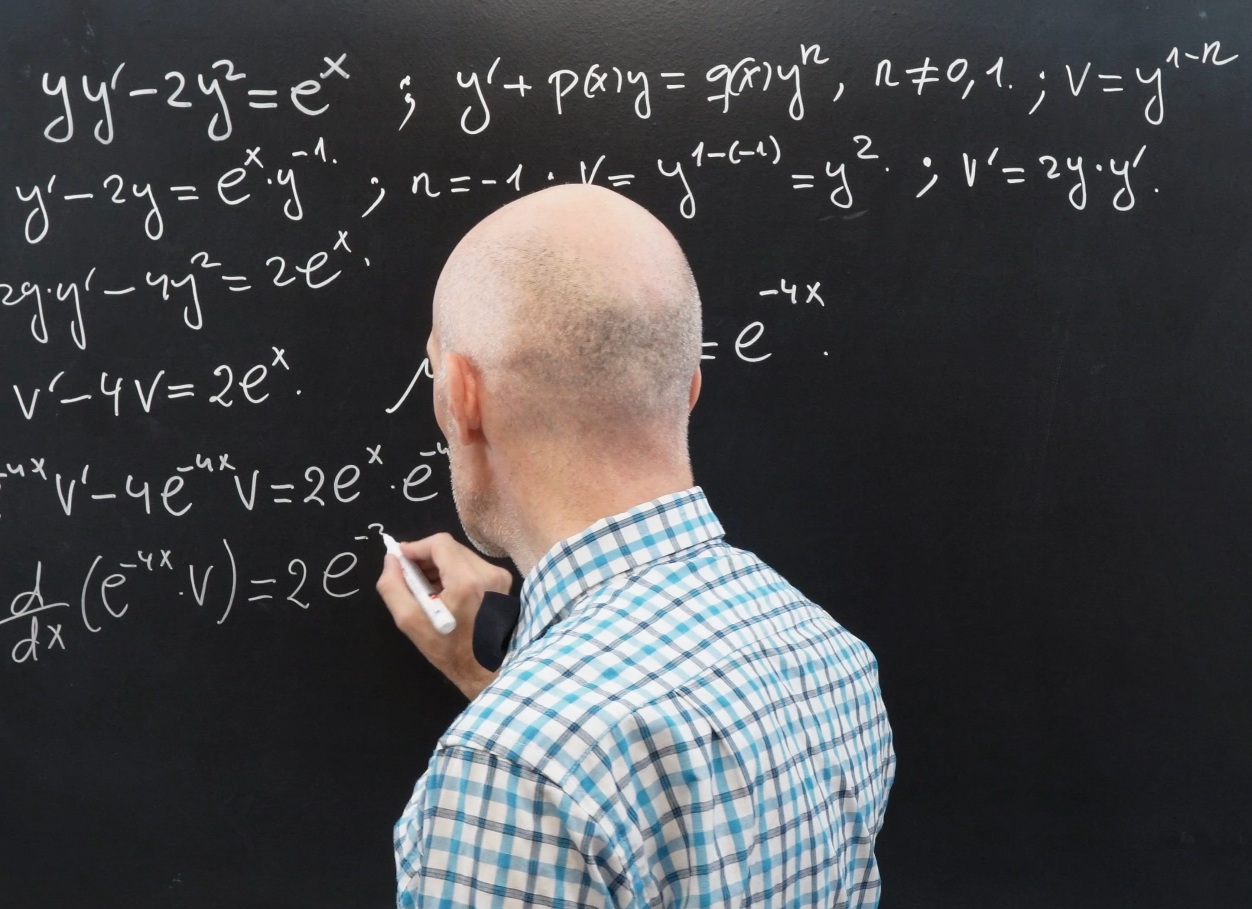 yy′ − 2y² = eˣ ; y′ + p(x)y = q(x)yⁿ, n ≠ 0, 1. ; v = y¹⁻ⁿ
y′ − 2y = eˣ · y⁻¹. ; n = −1 . v = y¹⁻⁽⁻¹⁾ = y². ; v′ = 2y · y′.
2y · y′ − 4y² = 2eˣ.
= e⁻⁴ˣ.
v′ − 4v = 2eˣ.
⁻⁴ˣ v′ − 4e⁻⁴ˣ v = 2eˣ · e⁻⁴
d/dx (e⁻⁴ˣ · v) = 2e⁻